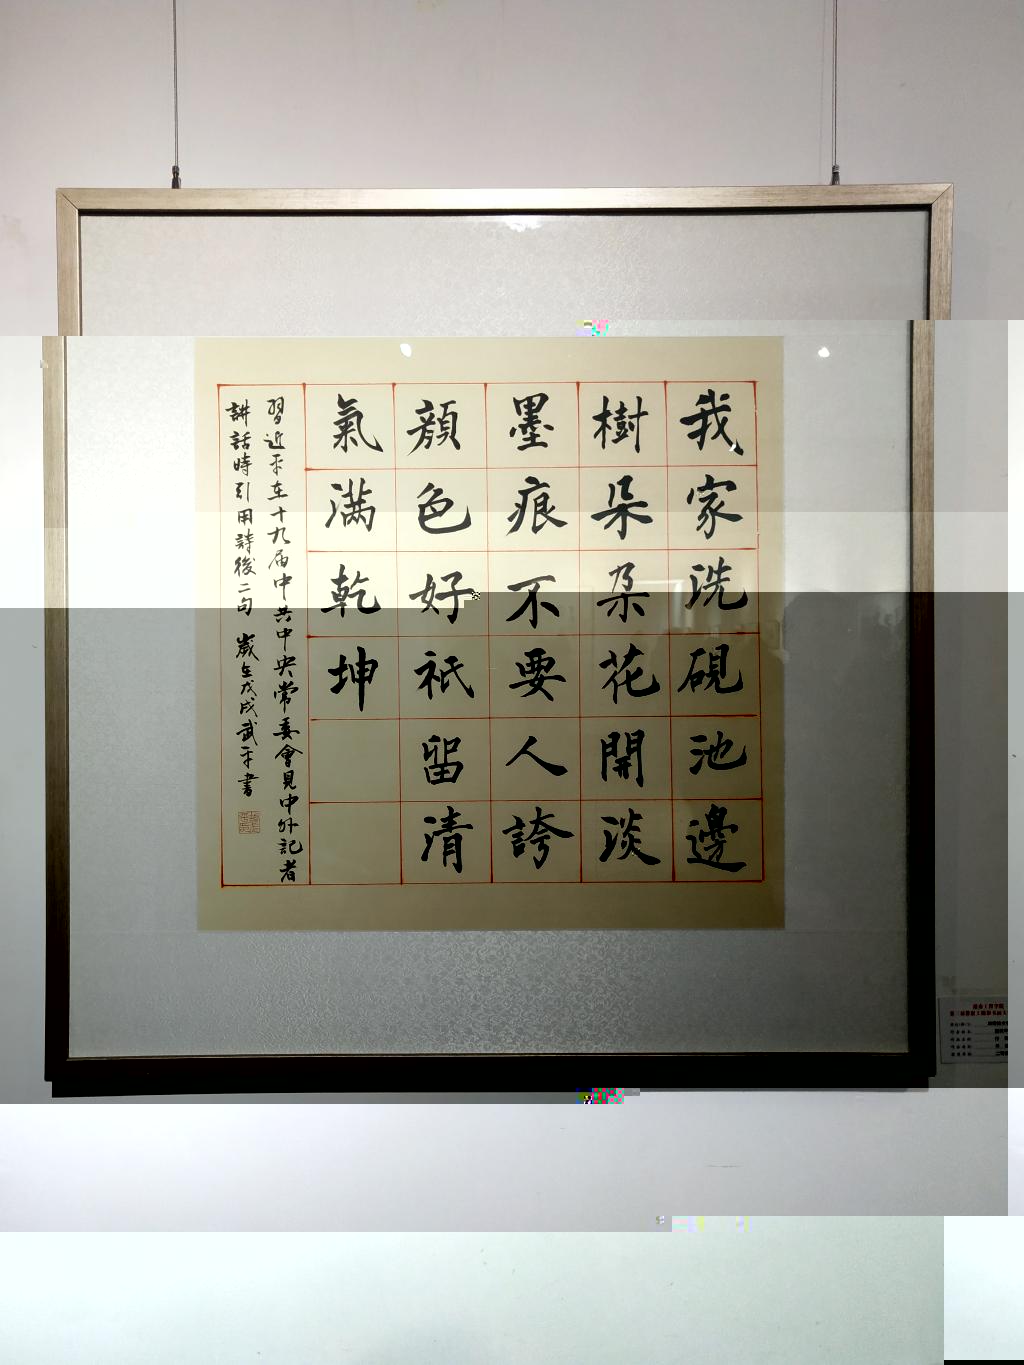 我家洗硯池邊
樹朵朵花開淡
墨痕不要人誇
顏色好祇留清
氣满乾坤
習近平在十九届中共中央常委會見中外記者
講話時引用詩後二句 歲在戊戌武平書